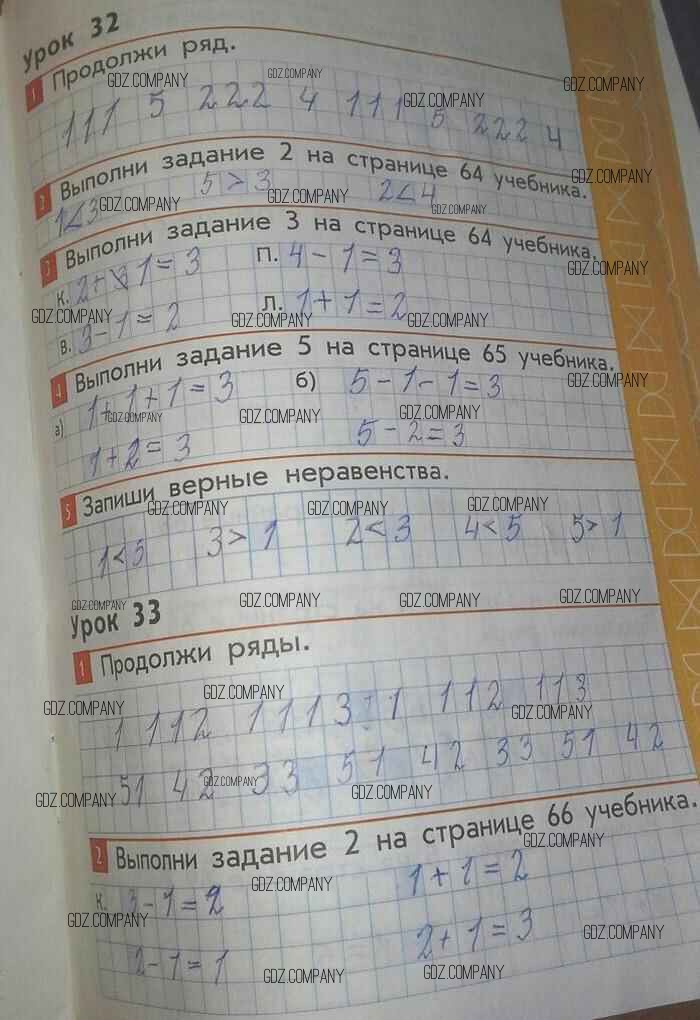 Урок 32
1 Продолжи ряд.
GDZ.COMPANY GDZ.COMPANY GDZ.COMPANY GDZ.COMPANY
111 5 222 4 111 5 222 4
2 Выполни задание 2 на странице 64 учебника.
GDZ.COMPANY GDZ.COMPANY GDZ.COMPANY GDZ.COMPANY
1<3 5>3 2<4
3 Выполни задание 3 на странице 64 учебника.
GDZ.COMPANY
К. 2+1=3 П. 4-1=3
GDZ.COMPANY GDZ.COMPANY GDZ.COMPANY
В. 3-1=2 Л. 1+1=2
4 Выполни задание 5 на странице 65 учебника.
GDZ.COMPANY
а) 1+1+1=3 б) 5-1-1=3
GDZ.COMPANY GDZ.COMPANY GDZ.COMPANY
1+2=3 5-2=3
5 Запиши верные неравенства.
GDZ.COMPANY GDZ.COMPANY GDZ.COMPANY
1<5 3>1 2<3 4<5 5>1
GDZ.COMPANY GDZ.COMPANY GDZ.COMPANY GDZ.COMPANY
Урок 33
1 Продолжи ряды.
GDZ.COMPANY GDZ.COMPANY GDZ.COMPANY
1 112 1113 1 112 113
51 42 33 51 42 33 51 42
GDZ.COMPANY GDZ.COMPANY GDZ.COMPANY
2 Выполни задание 2 на странице 66 учебника.
GDZ.COMPANY GDZ.COMPANY
К. 3-1=2 1+1=2
GDZ.COMPANY GDZ.COMPANY
2-1=1 2+1=3
GDZ.COMPANY GDZ.COMPANY